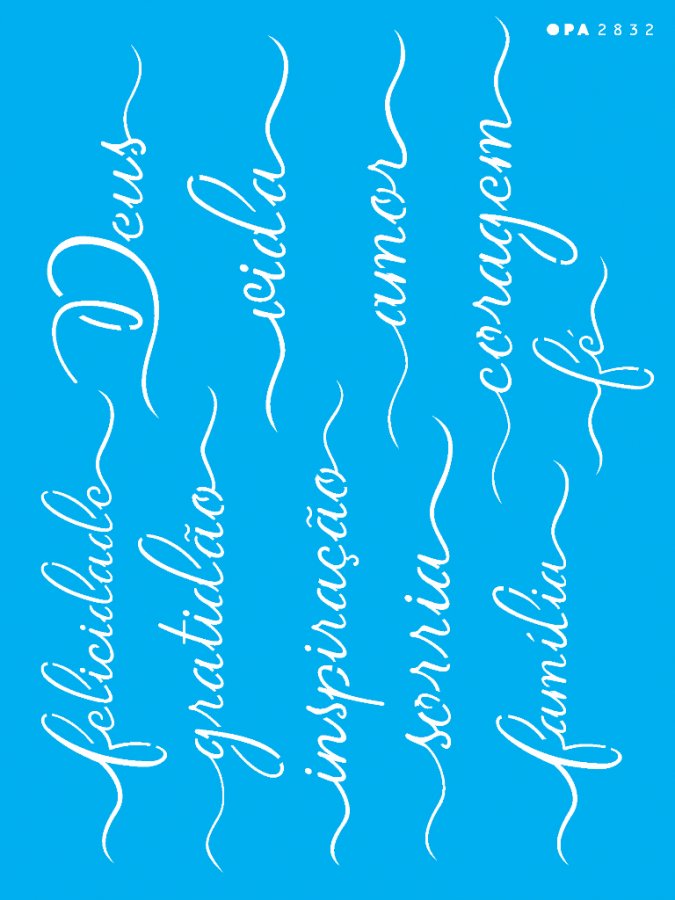 OPA 2832
Deus
vida
amor
coragem
fé
felicidade
gratidão
inspiração
sorria
família